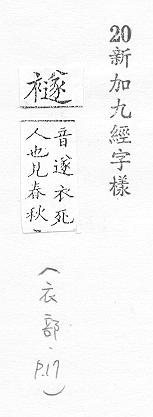 20新加九經字樣
禭
音遂衣死
人也見春秋
（衣部·P.17）